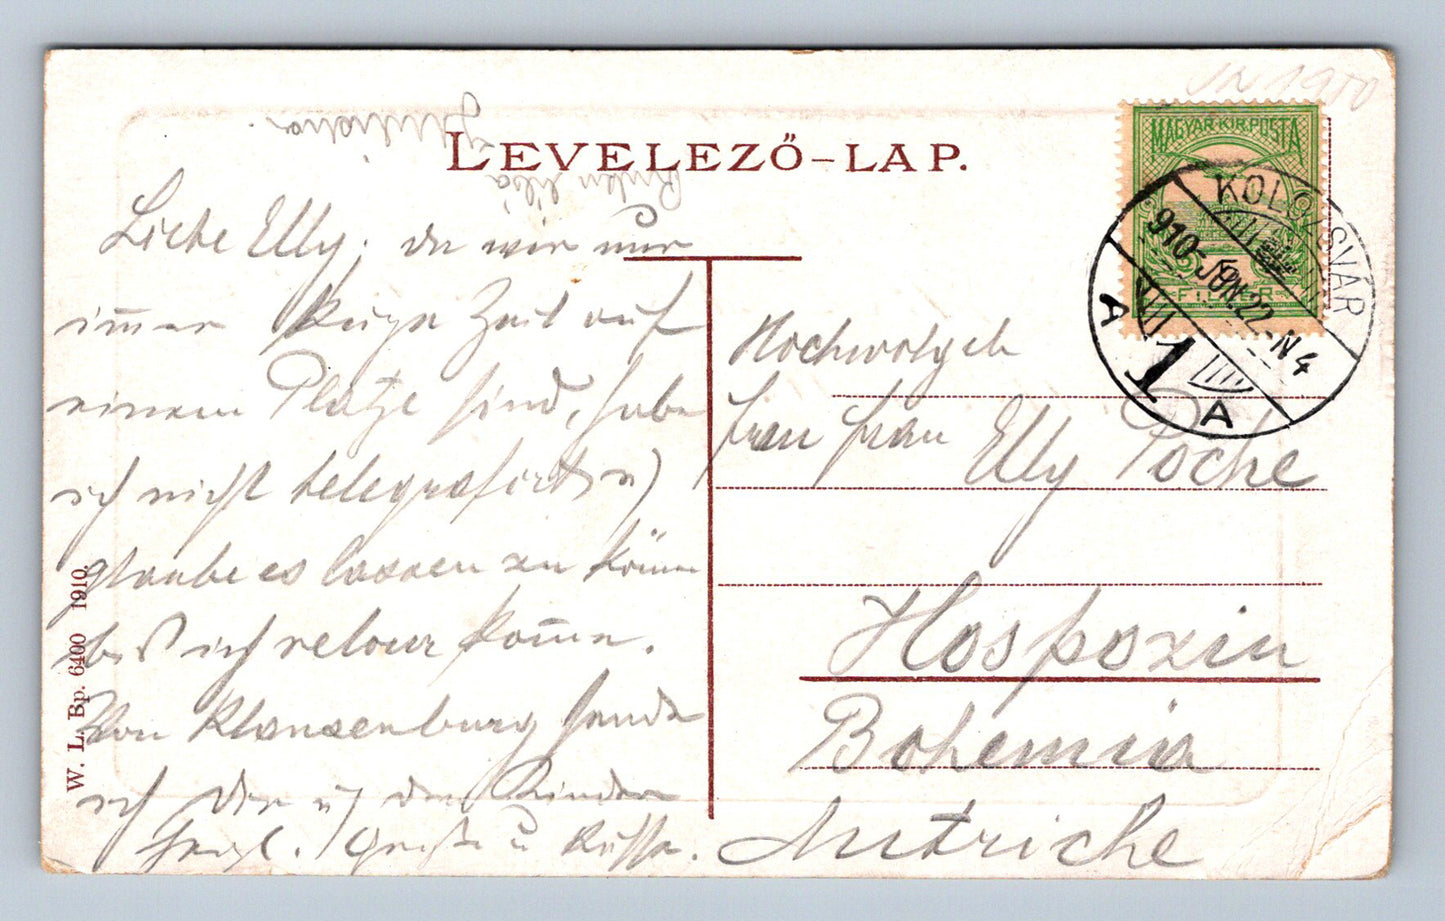 UN 1900
LEVELEZŐ-LAP.
MAGYAR·KIR·POSTA
FILLÉR
KOLOZSVÁR
910 JUN. 22. N4
A 1 A
Liebe Elly; da wir nur
immer kurze Zeit auf
einem Platze sind, habe
ich nicht telegrafirt
glaube es lassen zu können
bis ich retour komme.
Von Klausenburg sende
ich Dir u den Kinder
herzl. Grüße u Küsse.
Hochwolgeb
Frau Frau Elly Poche
Hospozin
Bohemia
Autriche
W. L. Bp. 6400 1910.